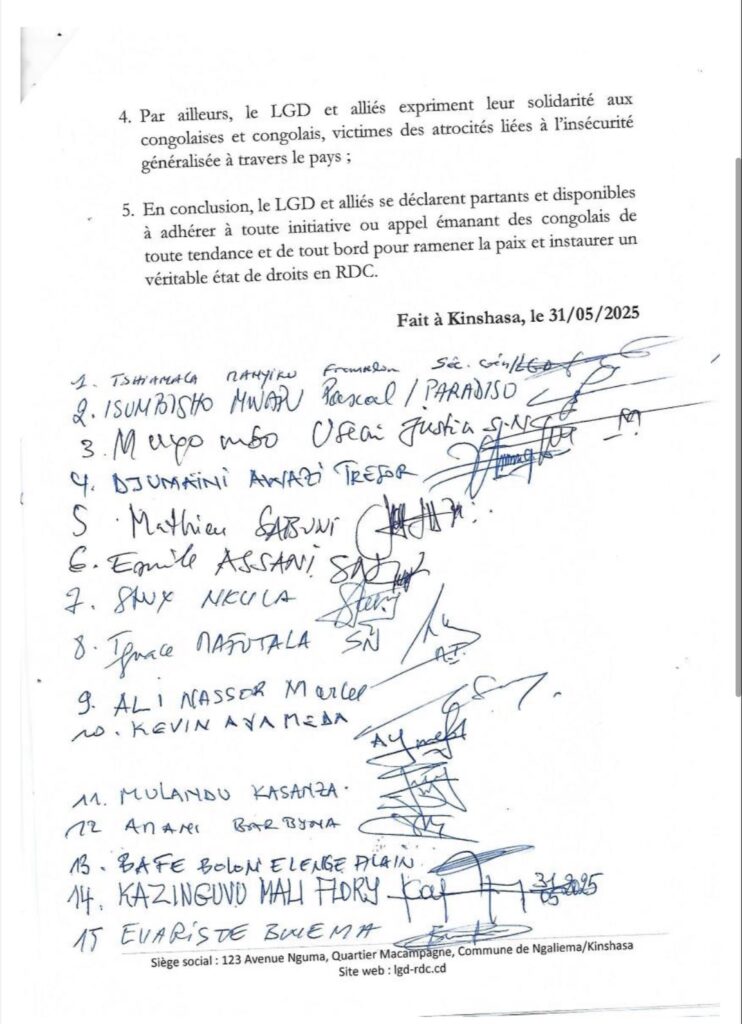 4. Par ailleurs, le LGD et alliés expriment leur solidarité aux
congolaises et congolais, victimes des atrocités liées à l'insécurité
généralisée à travers le pays ;
5. En conclusion, le LGD et alliés se déclarent partants et disponibles
à adhérer à toute initiative ou appel émanant des congolais de
toute tendance et de tout bord pour ramener la paix et instaurer un
véritable état de droits en RDC.
Fait à Kinshasa, le 31/05/2025
1. TSHIAMALA Séc. Gén/LGD
2. ISUMBISHO MWAPU Pascal / PARADISO
3. Justin
4. DJUMAINI AWAZI TRESOR
5. Mathieu SABUNI
6. Emile ASSANI
7. NKULA
8. Ignace MAFUTALA SN
9. ALI NASSOR Marcel
10. KEVIN AYAMEBA
11. MULANDU KASANZA.
12 ANANI
13. BAFE BOLON ELENGE ALAIN
14. KAZINGUVU MALI FLORY 31 05 2025
15 EVARISTE BWEMA
Siège social : 123 Avenue Nguma, Quartier Macampagne, Commune de Ngaliema/Kinshasa
Site web : lgd-rdc.cd